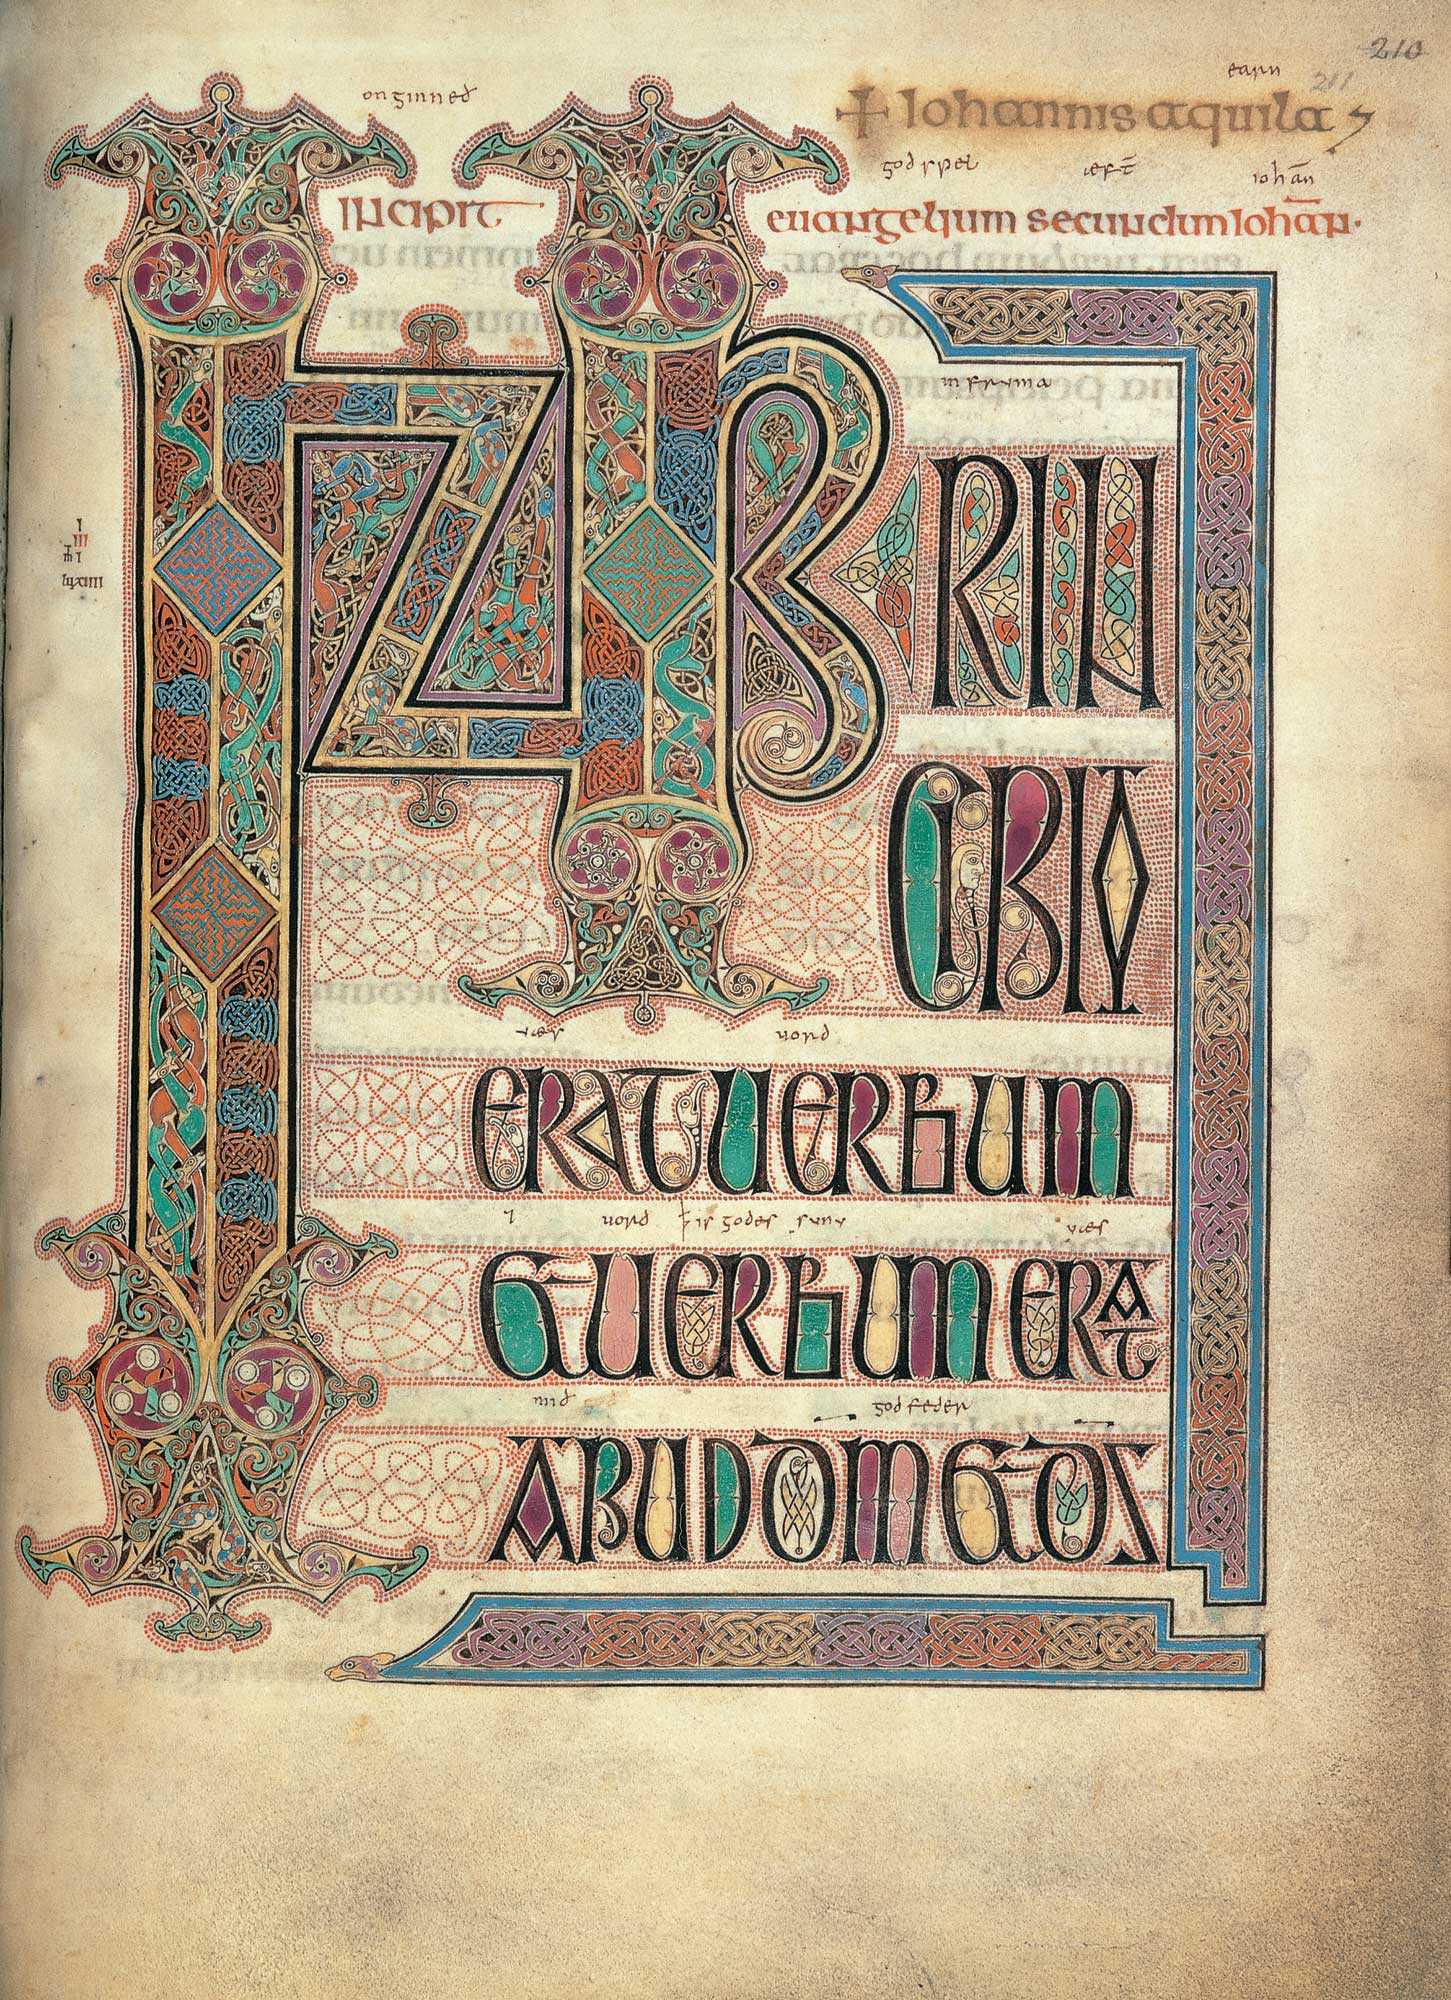 210
211
earn
onginneð
+ Iohannis aquila
godspel æft iohan
Incipit euangelium secundum Iohan.
in fruma
IN PRIN
CIPIO
wæs uord
ERAT UERBUM
7 uord þ is godes sunu wæs
ET UERBUM ERAT
mið god feder
APUD DM ET DS